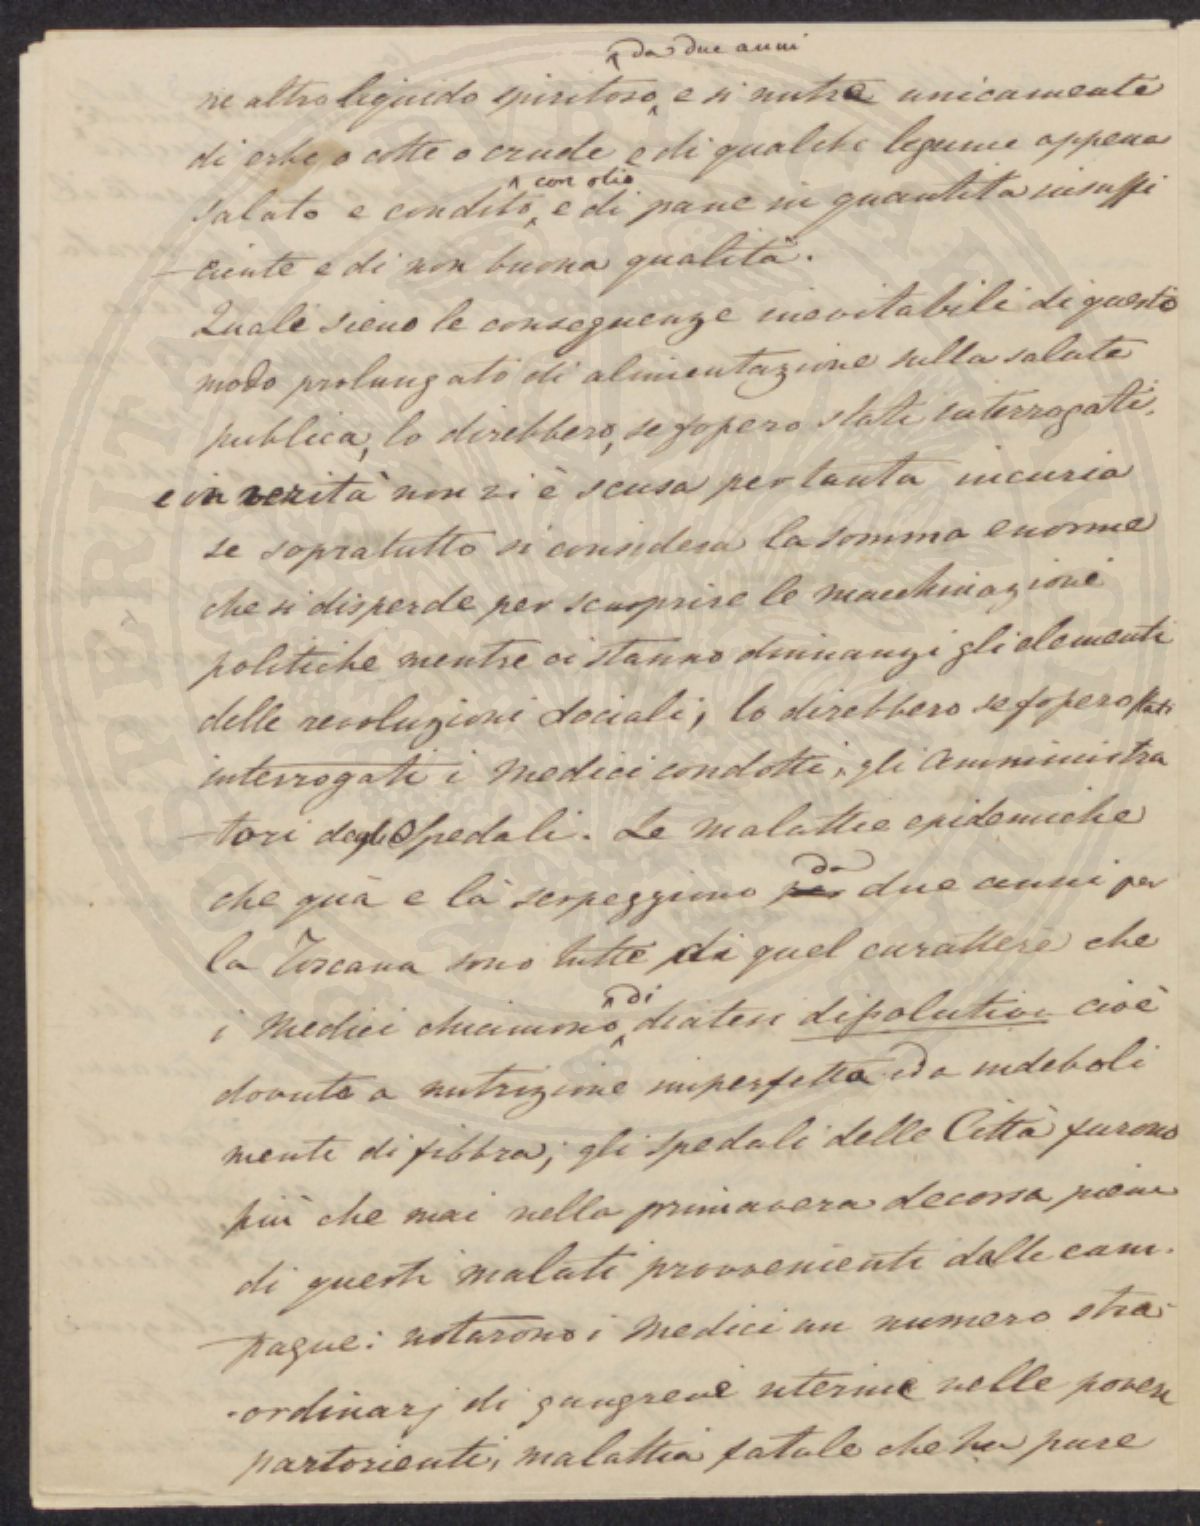 ^ da due anni
ne altro liquido spiritoso, e si nutre unicamente
di erbe o cotte o crude e di qualche legume appena
^ con olio
salato e condito, e di pane in quantità insuffi
-ciente e di non buona qualità.
Quali sieno le conseguenze inevitabili di questo
modo prolungato di alimentazione sulla salute
publica, lo direbbero, se fossero stati interrogati,
e in verità non vi è scusa per tanta incuria
se sopratutto si considera la somma enorme
che si disperde per scuoprire le macchinazioni
politiche mentre ci stanno dinnanzi gli elementi
delle revoluzioni sociali, lo direbbero se fossero stati
interrogati i Medici condotti, gli Amministra
-tori degli Spedali. Le Malattie epidemiche
da
che quà e là serpeggiano per due anni per
la Toscana sono tutte di quel carattere che
^ di
i Medici chiamano diatesi dissolutiva cioè
dovute a nutrizione imperfetta ed a indeboli
mento di fibbra; gli spedali delle Città furono
più che mai nella primavera decorsa pieni
di questi malati provenienti dalle cam-
-pagne: notarono i Medici un numero stra-
-ordinarj di gangrene uterine nelle povere
partorienti, malattia fatale che ha pure